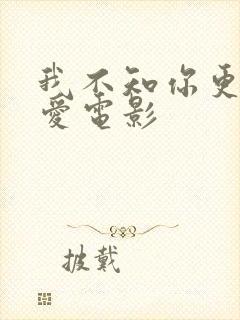 我不知你更
愛電影
披戴